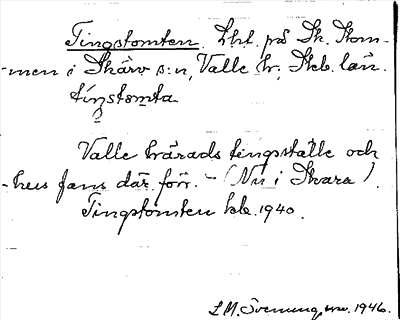 Tingstomten. Lht. på St. Stom-
men i Skärv s:n, Valle hr; Skb. län.
tiŋstomta
Valle härads tingställe och
-hus fans där förr. - (Nu i Skara).
Tingstomten kb. 1940.
L.M. Svenung, inv. 1946.